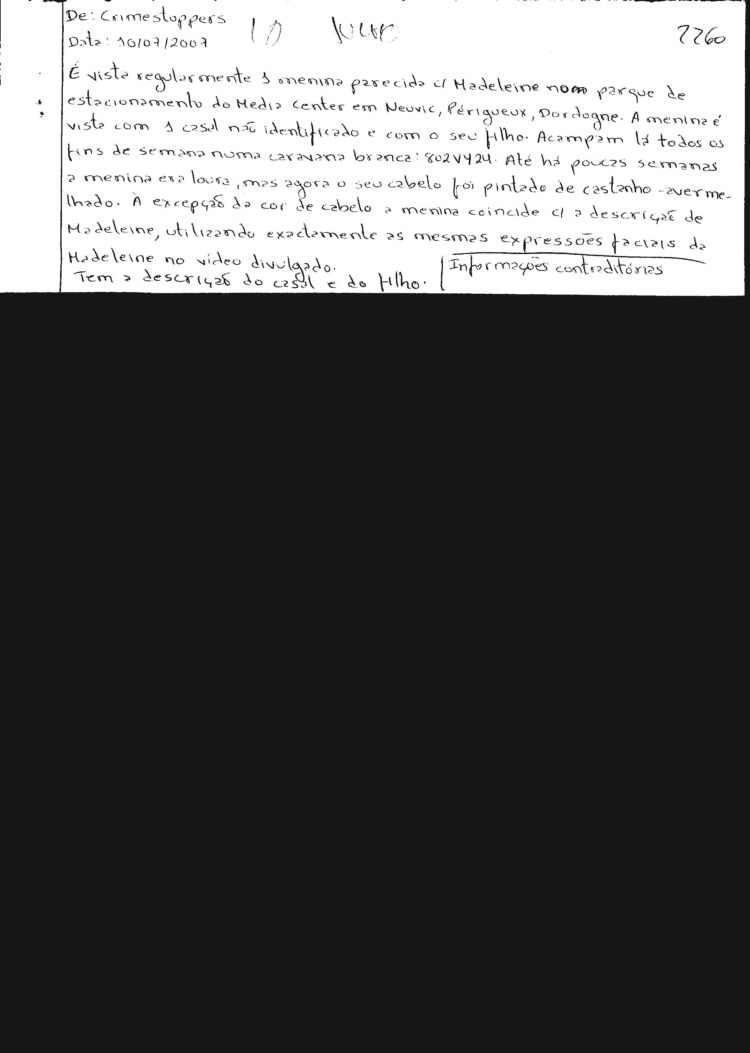 De: Crimestoppers
Data: 10/07/2007
10 JULHO
2260
É vista regularmente 1 menina parecida c/ Madeleine num parque de
estacionamento do Media Center em Neuvic, Périgueux, Dordogne. A menina é
vista com 1 casal não identificado e com o seu filho. Acampam lá todos os
fins de semana numa caravana branca: 802VY24. Até há poucas semanas
a menina era loura, mas agora o seu cabelo foi pintado de castanho-averme-
lhado. À excepção da cor de cabelo a menina coincide c/ a descrição de
Madeleine, utilizando exactamente as mesmas expressões faciais da
Madeleine no vídeo divulgado.
Tem a descrição do casal e do filho.
Informações contraditórias